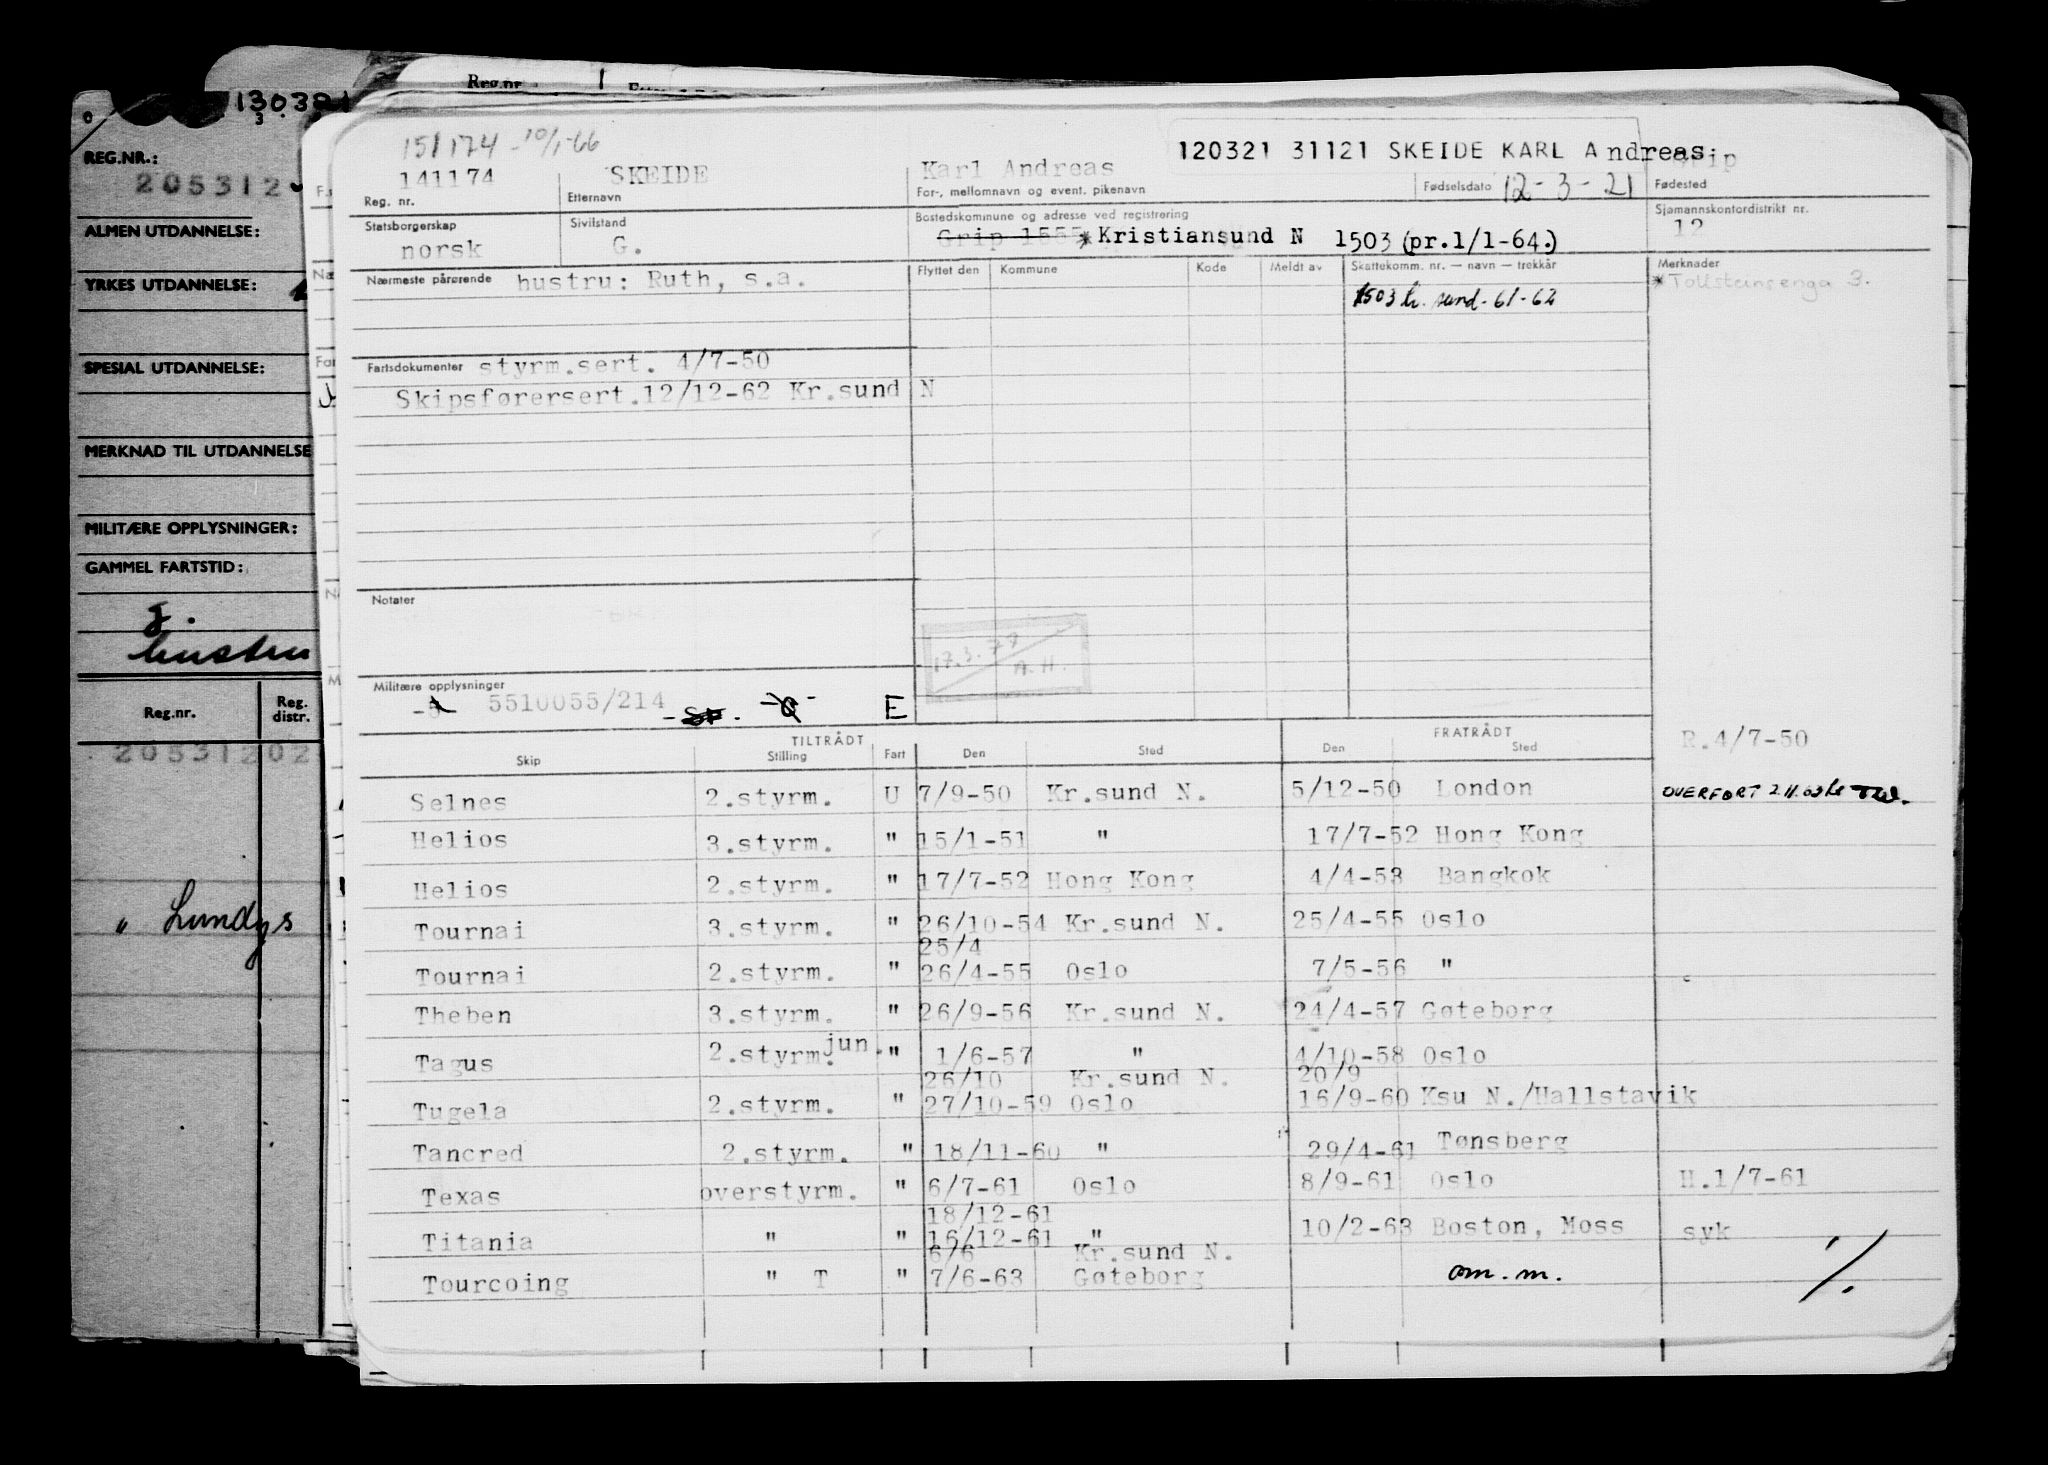 Reg.nr.
130321
REG.NR.:
205312
ALMEN UTDANNELSE:
YRKES UTDANNELSE:
SPESIAL UTDANNELSE:
MERKNAD TIL UTDANNELSE
MILITÆRE OPPLYSNINGER:
GAMMEL FARTSTID:
g.
hustru
Reg.nr. Reg. distr.
205312 02
" Lundys
151174 - 10/1-66
120321 31121 SKEIDE KARL Andreas
141174 SKEIDE Karl Andreas 12-3-21
Reg. nr. Etternavn For-, mellomnavn og event. pikenavn Fødselsdato Fødested
Statsborgerskap Sivilstand Bostedskommune og adresse ved registrering Sjømannskontordistrikt nr.
norsk G. Grip 1555 * Kristiansund N 1503 (pr.1/1-64.) 12
Nærmeste pårørende hustru: Ruth, s.a. Flyttet den Kommune Kode Meldt av Skattekomm. nr. — navn — trekkår Merknader
1503 kr. sund - 61-62 * Tollsteinsenga 3.
Fartsdokumenter styrm.sert. 4/7-50
Skipsførersert.12/12-62 Kr.sund N
Notater
17.3.79
A.H.
Militære opplysninger
5510055/214 E
TILTRÅDT FRATRÅDT
Skip Stilling Fart Den Sted Den Sted R.4/7-50
Selnes 2.styrm. U 7/9-50 Kr.sund N. 5/12-50 London OVERFØRT 2.11.63
Helios 3.styrm. " 15/1-51 " 17/7-52 Hong Kong
Helios 2.styrm. " 17/7-52 Hong Kong 4/4-53 Bangkok
Tournai 3.styrm. " 26/10-54 Kr.sund N. 25/4-55 Oslo
25/4
Tournai 2.styrm. " 26/4-55 Oslo 7/5-56 "
Theben 3.styrm. " 26/9-56 Kr.sund N. 24/4-57 Gøteborg
Tagus 2.styrm. jun. " 1/6-57 " 4/10-58 Oslo
26/10 Kr.sund N. 20/9
Tugela 2.styrm. " 27/10-59 Oslo 16/9-60 Ksu N./Hallstavik
Tancred 2.styrm. " 18/11-60 " 29/4-61 Tønsberg
Texas overstyrm. " 6/7-61 Oslo 8/9-61 Oslo H.1/7-61
18/12-61
Titania " " 16/12-61 " 10/2-63 Boston, Moss syk
6/6 Kr.sund N.
Tourcoing " T " 7/6-63 Gøteborg om. m. ./.